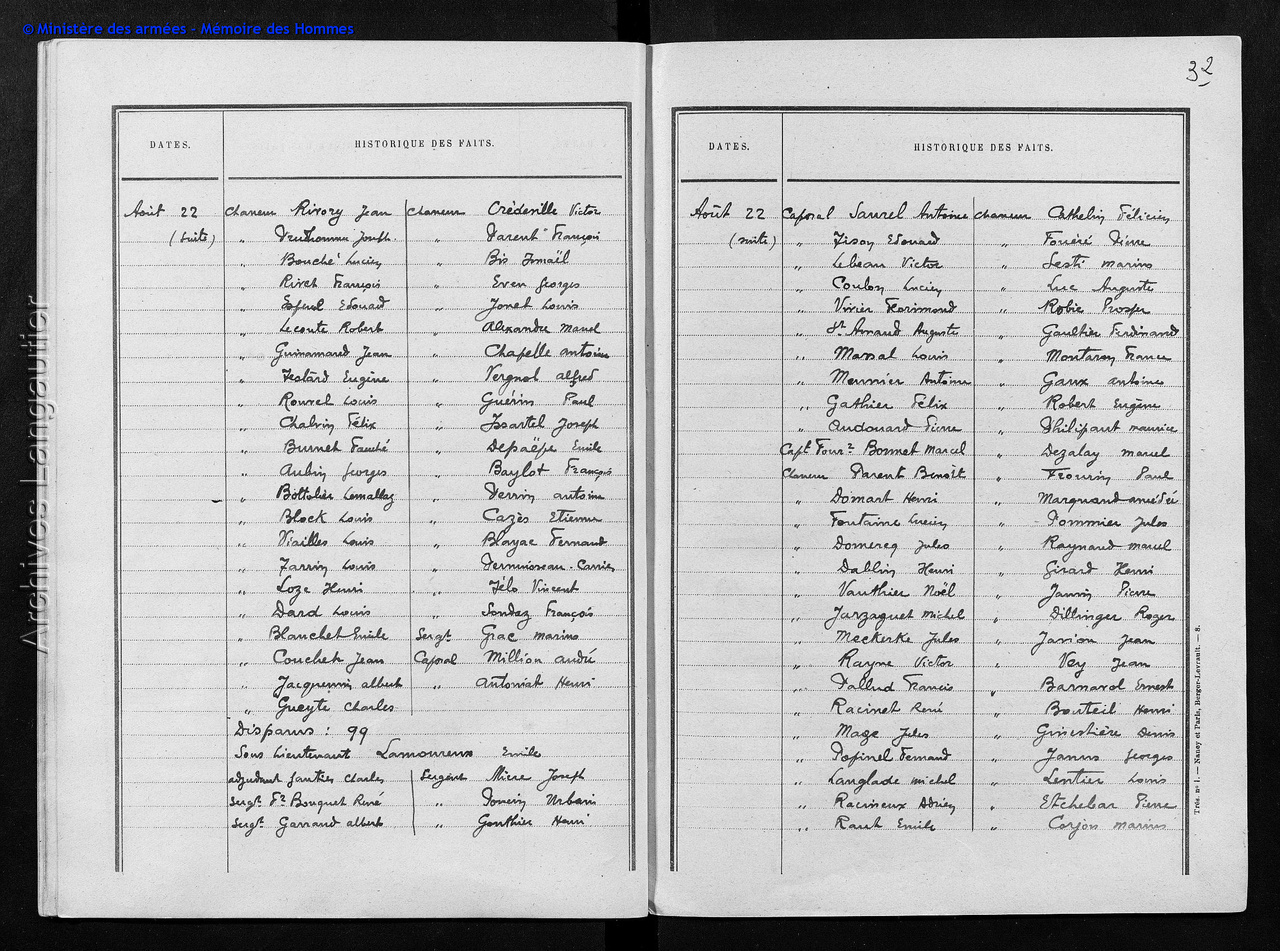 © Ministère des armées - Mémoire des Hommes
Archives Langautier
DATES. HISTORIQUE DES FAITS.
Août 22 Chasseur Rivory Jean Chasseur Crédeville Victor
(suite) " Prudhomme Joseph " Parent François
" Bouché Lucien " Bis Ismaël
" Rivet François " Even Georges
" Edouard " Jonet Louis
" Lecoute Robert " Alexandre Marcel
" Guinamard Jean " Chapelle Antoine
" Testard Eugène " Vergnol Alfred
" Rouvel Louis " Guérin Paul
" Chalvin Félix " Issartel Joseph
" Burnet " Depaëpe Emile
" Aubin Georges " Baylot François
" Bottolier Lemallaz " Perrin Antoine
" Block Louis " Cazès Etienne
" Viailles Louis " Blayac Fernand
" Zarrin Louis "
" Loze Henri " Félo Vincent
" Dard Louis " Sondaz François
" Blanchet Emile Sergt Grac Marins
" Couchet Jean Caporal Million André
" Jacquemin Albert " Antoniat Henri
" Gueyte Charles
Disparus : 99
Sous Lieutenant Lamoureux Emile
Adjudant Gautier Charles Sergent Mière Joseph
Sergt Fr Bouquet René " Poncin Urbain
Sergt Garrand Albert " Gonthier Henri
32
DATES. HISTORIQUE DES FAITS.
Août 22 Caporal Saurel Antoine Chasseur Cathelin Félicien
(suite) " Tison Edouard " Fouéré Pierre
" Lebeau Victor " Sesti Marins
" Coulon Lucien " Luc Auguste
" Vivier Florimond " Robic Prosper
" St Arnaud Auguste " Gaultier Ferdinand
" Massal Louis " Montaron France
" Meunier Antoine " Gaux Antoine
" Gathier Félix " Robert Eugène
" Audouard Pierre " Philipart Maurice
Capl Fourr Bonnet Marcel " Dezalay Marcel
Chasseur Parent Benoît " Frourin Paul
" Domart Henri " Marquand Amédée
" Fontaine Lucien " Pommier Jules
" Domercq Jules " Raynaud Marcel
" Dablin Henri " Girard Henri
" Vauthier Noël " Jamin Pierre
" Jarzaguet Michel " Dillinger Roger
" Meckerke Jules " Javion Jean
" Rayne Victor " Vey Jean
" Pallud Francis " Barnavol Ernest
" Racinet René " Bouteil Henri
" Maze Jules " Ginestière Denis
" Popinel Fernand " Janus Georges
" Langlade Michel " Lentier Louis
" Racineux Adrien " Etchebar Pierre
" Raut Emile " Corjon Marins
Trés. nº 1. — Nancy et Paris, Berger-Levrault. — 8.